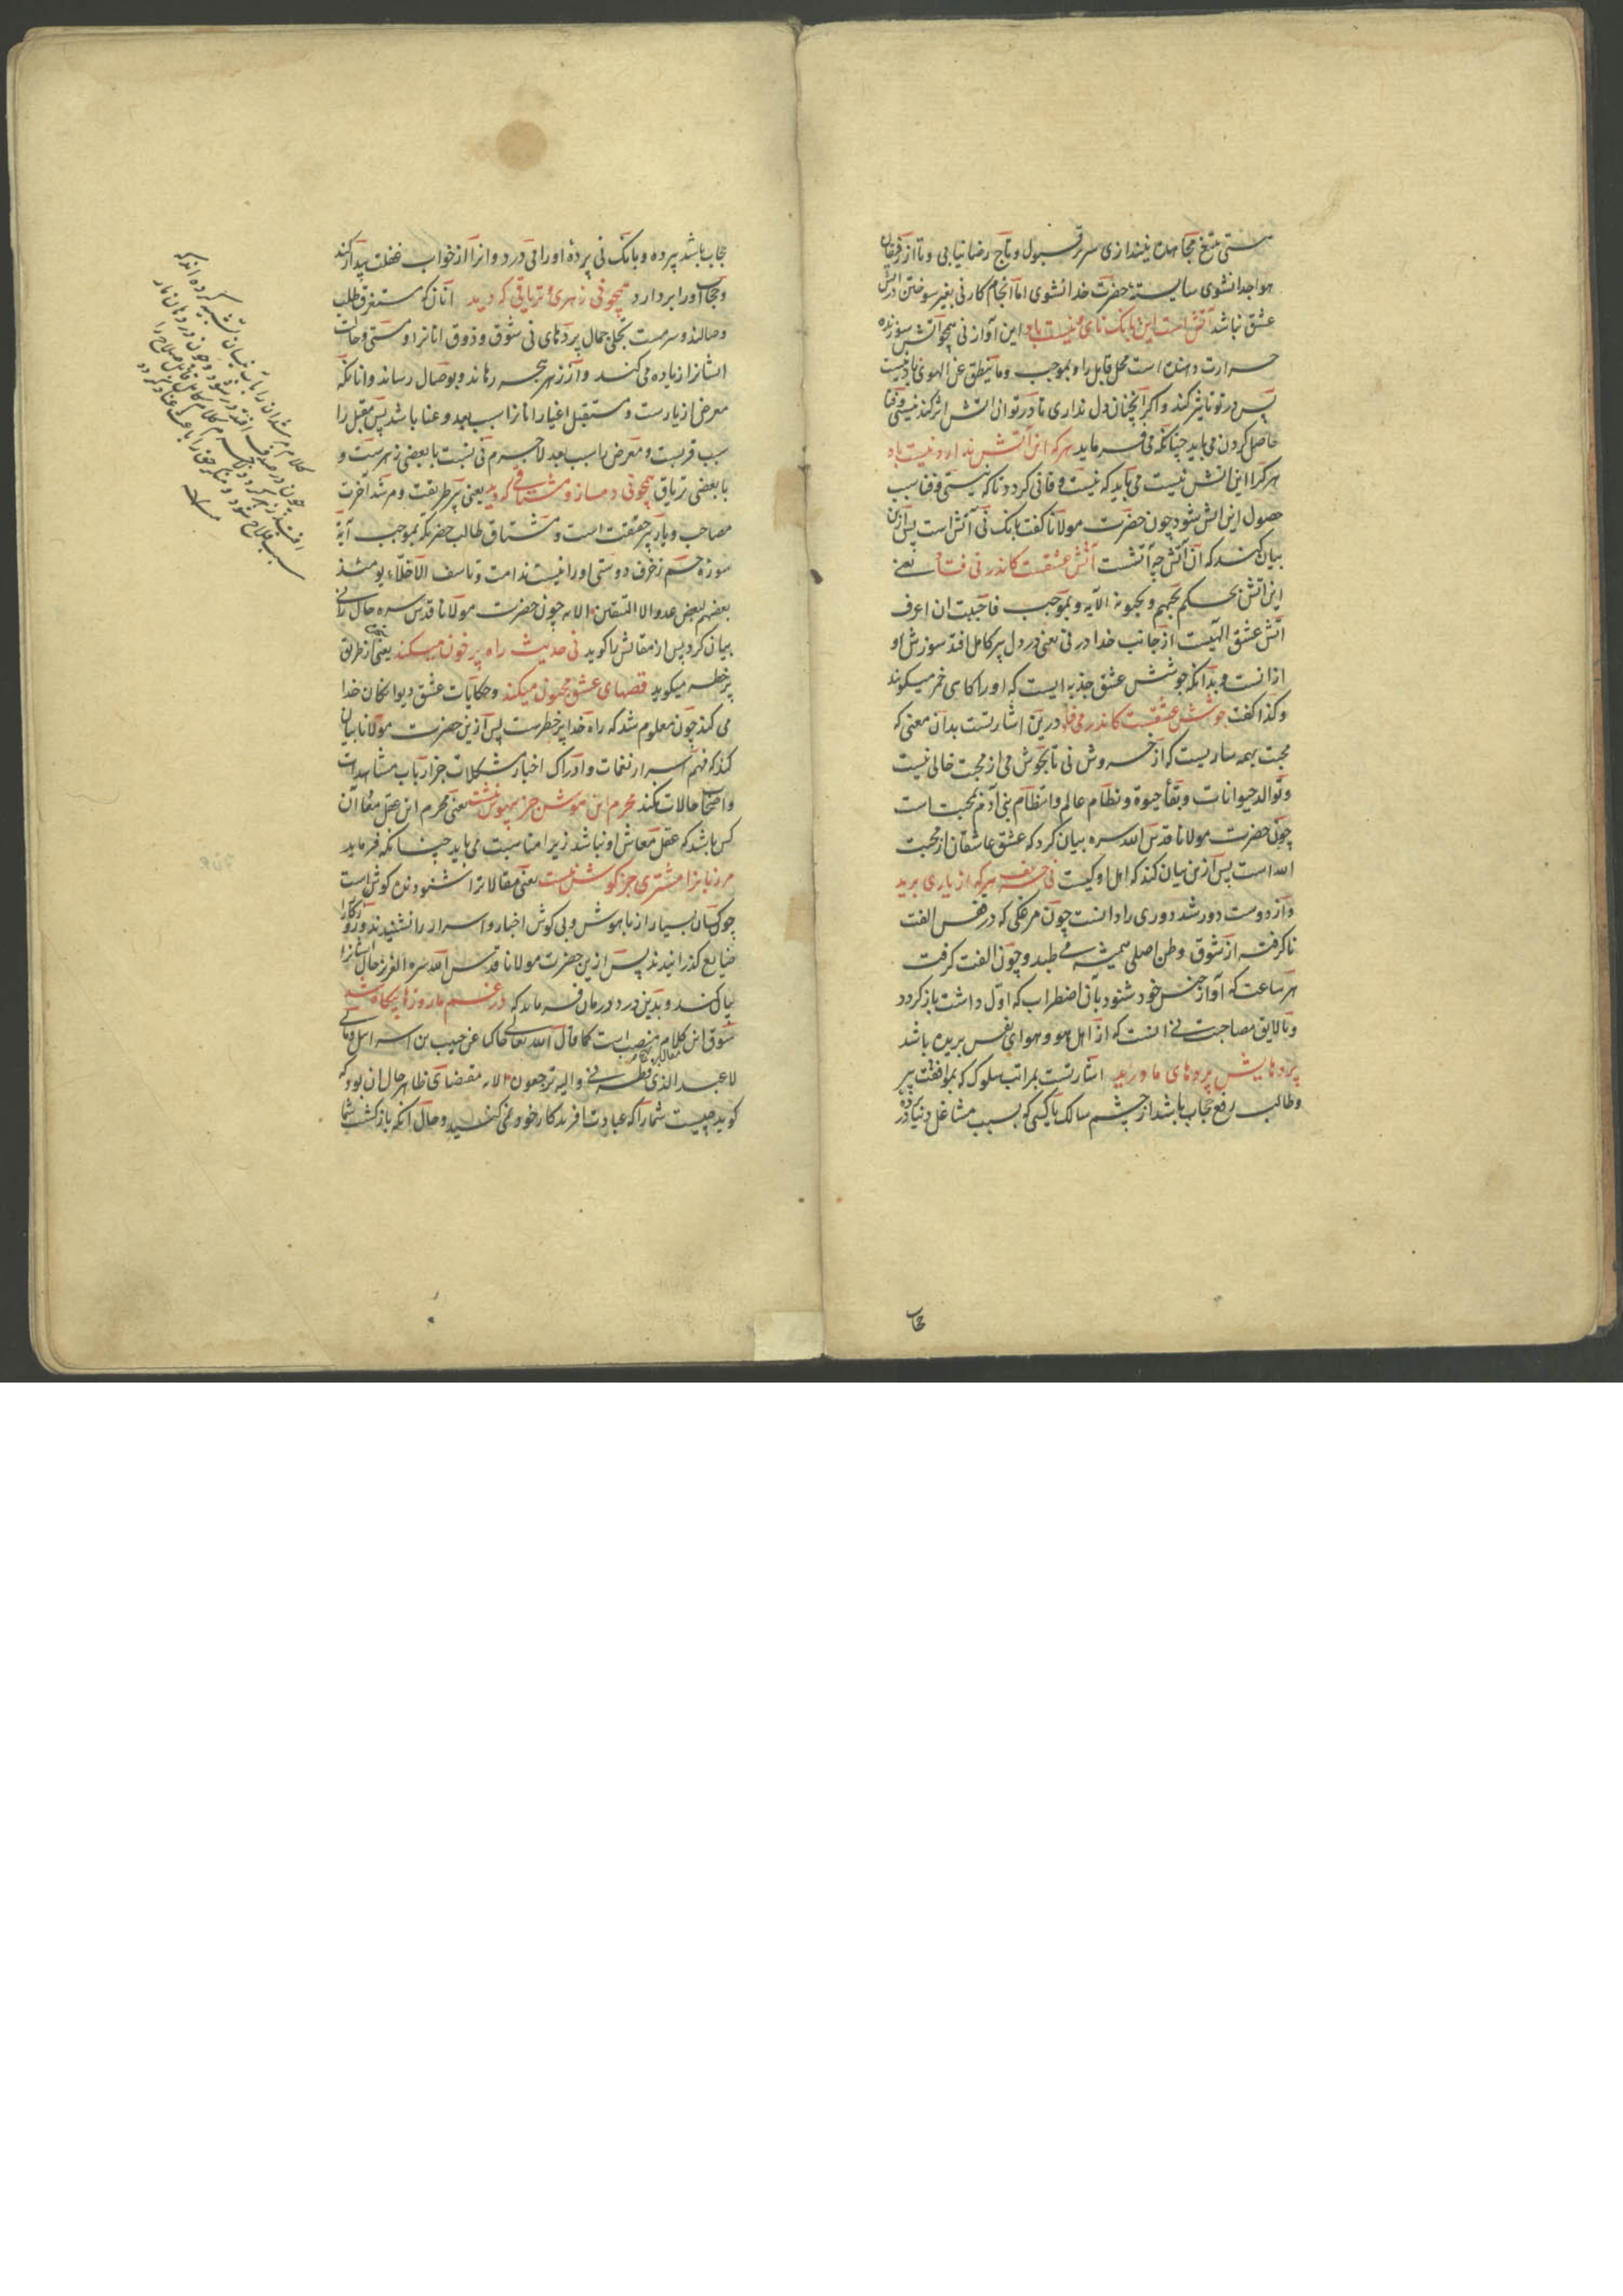 هستی بتیغ مجاهده نیندازی سر بر قبول و تاج رضا نیابی و تا از رفیقان
هوا جدا نشوی شایستهٔ حضرت خدا نشوی اما انجام کار نی بغیر سوختن در آتش
عشق نباشد آتش است این بانک نای و نیست باد این آواز نی همچو آتش سوزنده
حرارت دهنده است محل قابل را و بموجب وما ینطق عن الهوی باد نیست
پس در تو تاثیر کند و اگر آنچنان دل نداری تا در تو آن آتش اثر کند نیستی و فنا
حاصل کردن می باید چنانکه می فرماید هر که این آتش ندارد نیست باد
هر کرا این آتش نیست می باید که نیست و فانی کردد تا که نیستی و فنا سبب
حصول این آتش شود چون حضرت مولانا کفت بانک نی آتش است پس ازین
بیان کند که آن آتش چه آتشست آتش عشقست کاندر نی فتاد یعنی
این آتش بحکم یحبهم و یحبونه الآیه و بموجب فاحببت ان اعرف
آتش عشق الهیست از جانب خدا در نی یعنی در دل پیر کامل افتد سوزش او
از آنست و بدانکه جوشش عشق جذبه ایست که او را کاهی خمر میکویند
و کذا کفت جوشش عشقست کاندر می فتاد درین اشارتست بدان معنی که
محبت بهمه ساریست که از خروش نی تا بجوش می از محبت خالی نیست
و توالد حیوانات و بقاء حیوة و نظام عالم و انتظام بنی آدم بمحبت است
چون حضرت مولانا قدس الله سره بیان کرد که عشق عاشقان از محبت
الله است پس ازین بیان کند که اهل او کیست نی حریف هر که از یاری برید
و از دوست دور شد دوری را دانست چون مرغکی که در قفس الفت
ناکرفته از شوق وطن اصلی همیشه می طپد و چون الفت کرفت
هر ساعت که آواز جنس خود شنود بآن اضطراب که اول داشت باز کردد
و تا لایق مصاحبت نی آنست که از اهل هو و هوای نفس بریده باشد
پردهایش پردهای ما درید اشارتست بمراتب سلوک که بموافقت پیر
و طالب رفع حجاب باشد از چشم سالک تا کسی که بسبب مشاغل دنیا در
حجاب
حجاب باشد پرده و بانک نی پردهٔ او را می درد و او را از خواب غفلت بیدار کند
و حجاب او را بردارد همچو نی زهری و تریاقی که دید آنان که مستغرق طلب
وصالند و سرمست تجلی جمال پردهای نی شوق و ذوق آنانرا و مستی و حالات
ایشانرا زیاده می کند و از زهر هجر رهاند و بوصال رساند و آنانکه
معرض از یارست و مستقبل اغیار آنانرا سبب بعد و عنا باشد پس مقبل را
سبب قربست و معرض را سبب بعد لاجرم نی نسبت با بعضی زهرست و
با بعضی تریاق همچو نی دمساز و مشتاقی که دید یعنی پیر طریقت و مرشد آخرت
مصاحب و یار پر حقیقت است و مشتاق طالب حضرتکه بموجب آیهٔ
سورهٔ حم زخرف دوستی او را نیست ندامت و تاسف الاخلّاء یومئذ
بعضهم لبعض عدو الا المتقین الآیه چون حضرت مولانا قدس سره حال نی را
بیان کرد پس از مقالش را کوید نی حدیث راه پر خون میکند یعنی نی از طریق
پر خطر میکوید قصهای عشق مجنون میکند و حکایات عشق دیوانکان خدا
می کند چون معلوم شد که راه خدا پر خطرست پس ازین حضرت مولانا بیان
کند که فهم اسرار نغمات و ادراک اخبار مشکلات جز ارباب مشاهدات
و اصحاب حالات نکند محرم این هوش جز بیهوش نیست یعنی محرم این عقل معاد آن
کس باشد که عقل معاش او نباشد زیرا مناسبت می باید چنانکه فرماید
مر زبانرا مشتری جز کوش نیست یعنی مقالاترا شنونده کوش است
چو کسان بسیار از ما بهوش و بی کوش اخبار و اسرار را نشنیدند و روزکار را
ضایع کذرانیدند پس ازین حضرت مولانا قدس الله سره العزیز حال ایشانرا
بیان کند و بدین درد درمان فرماید که در غم ما روزها بیکاه شد
سوق این کلام منصب است کما قال الله تعالی حاکیا عن حبیب بن اسرائیل و مالی
لا اعبد الذی فطرنی و الیه ترجعون الآیه مقتضای ظاهر حال آن بود که
کوید چیست شما را که عبادت آفریدکار خود نمی کنید و حال آنکه بازکشت شما
کلام مرشدان را بآب نیسان تشبیه کرده اند که
چون در صدف افتد در شود و چون در دهان مار
افتد زهر کردد